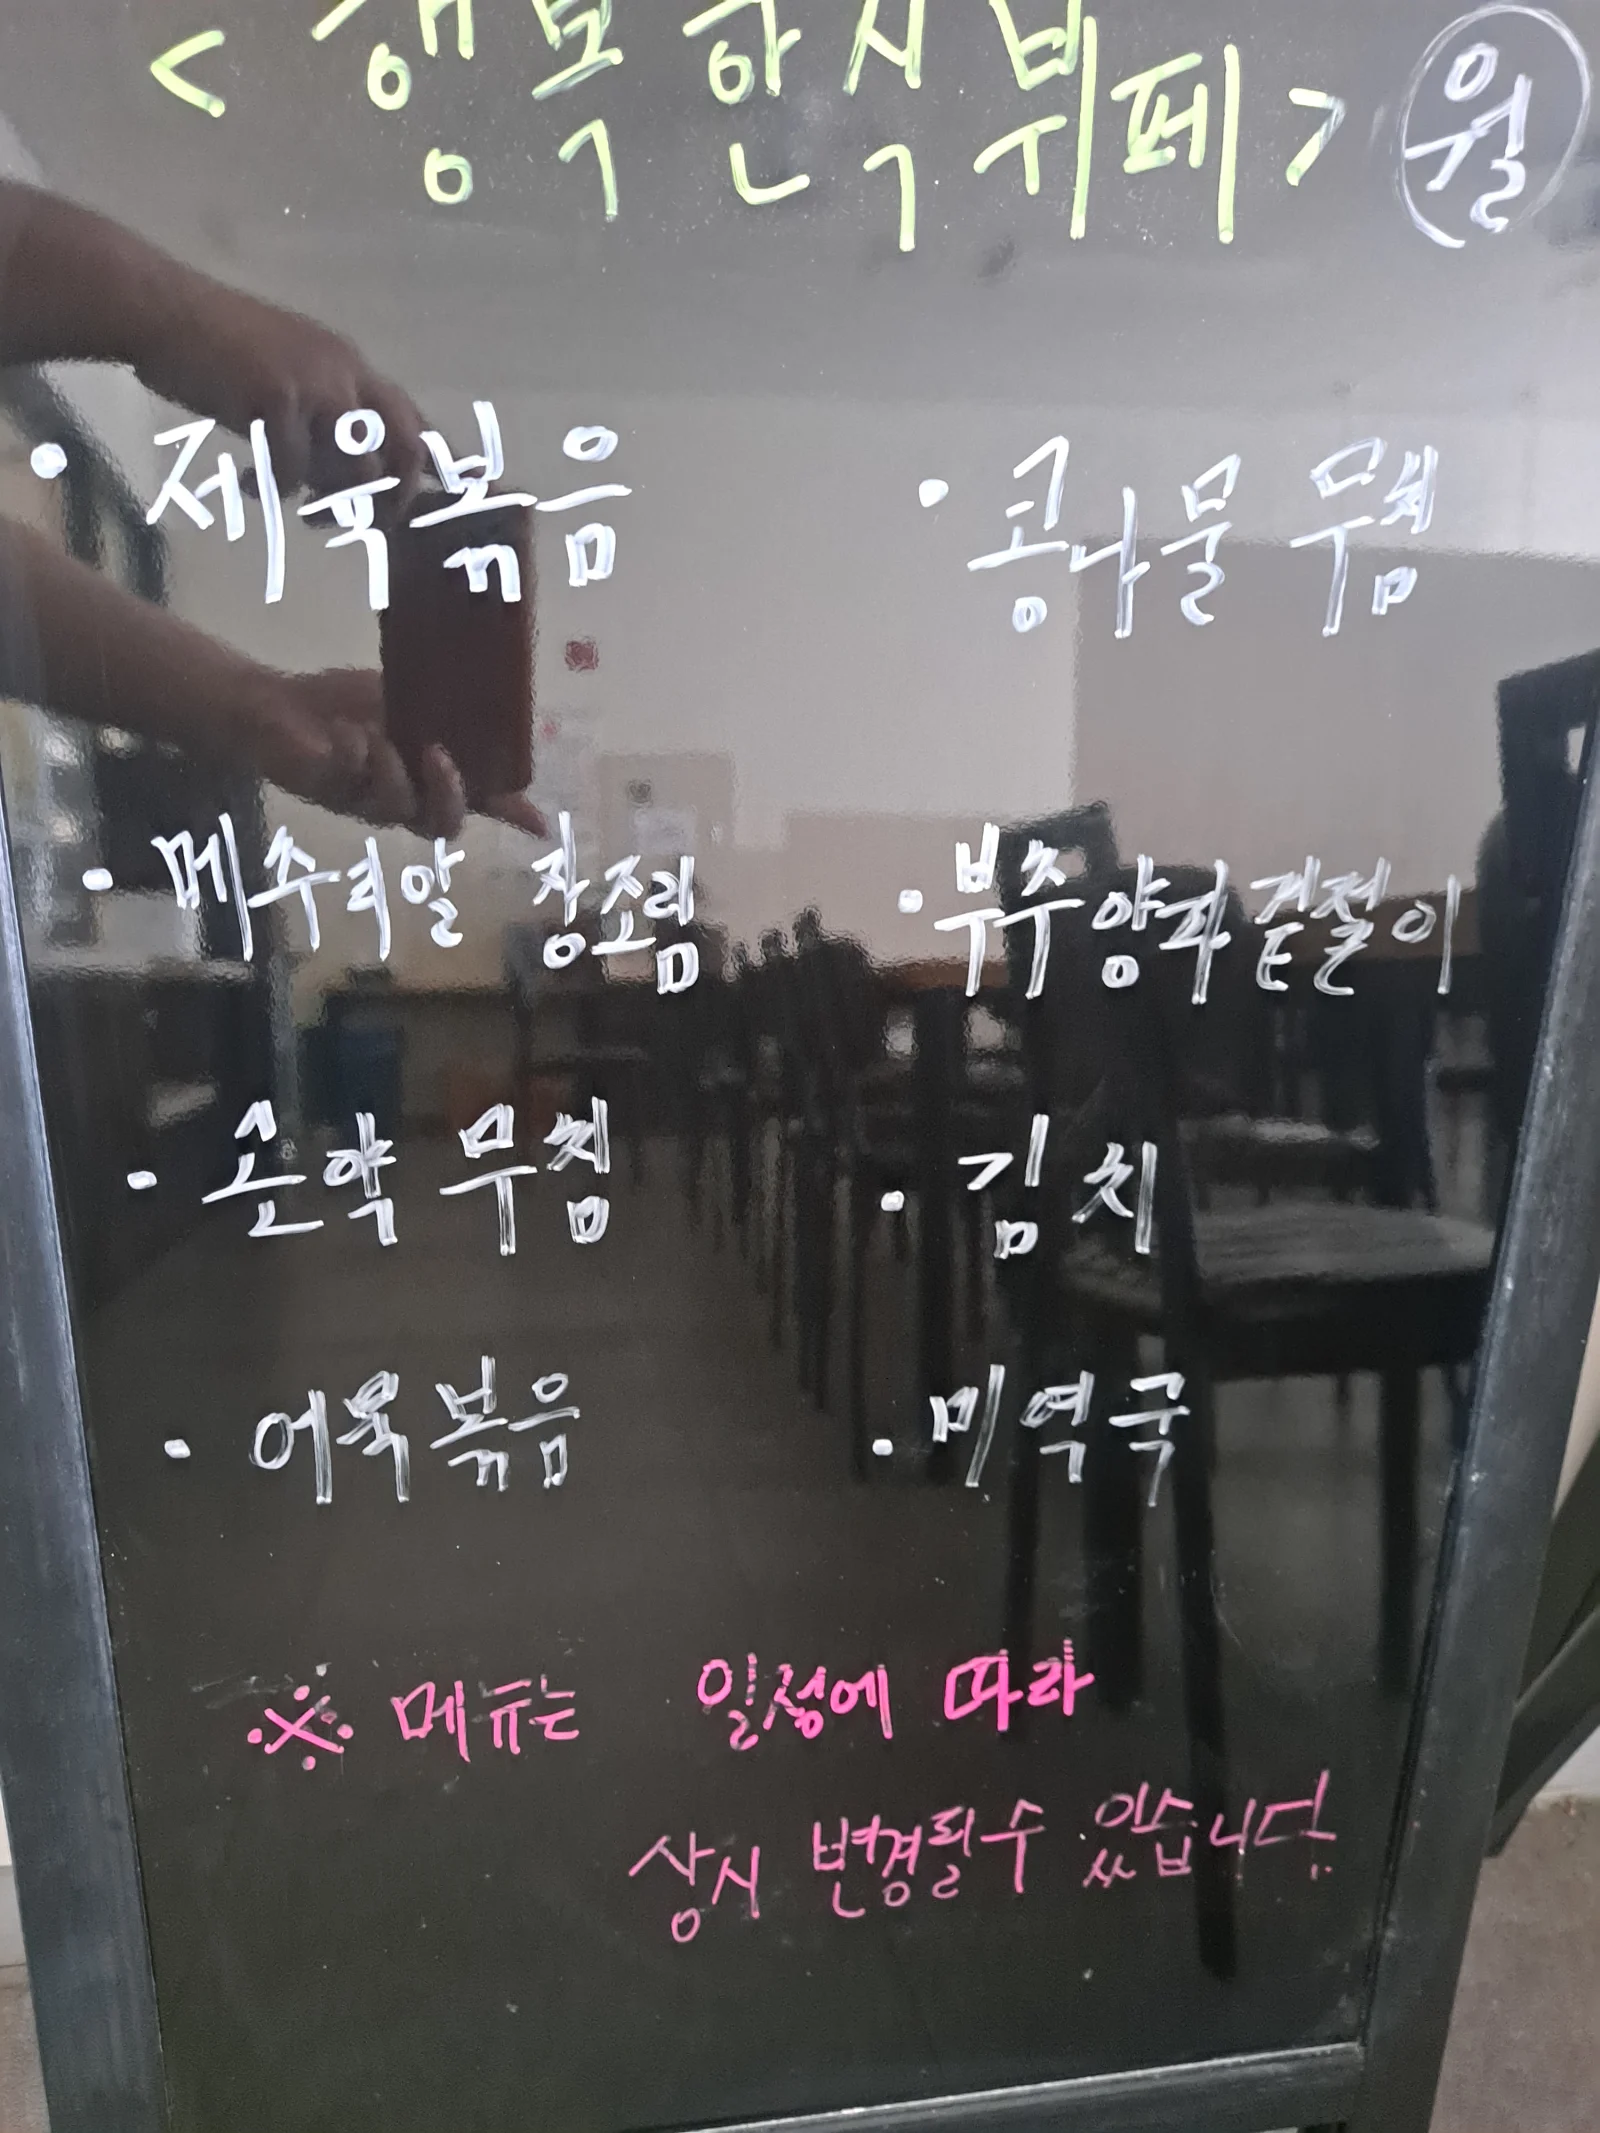 <행복한식뷔페> 월
· 제육볶음
· 콩나물 무침
· 메추리알 장조림
· 부추양파겉절이
· 손약 무침
· 김치
· 어묵볶음
· 미역국
※ 메뉴는 일정에 따라
상시 변경될수 있습니다.